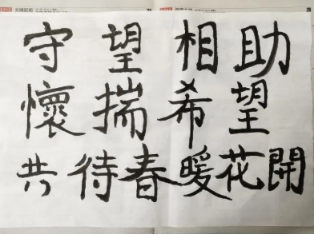 守望相助
懷揣希望
共待春暖花開